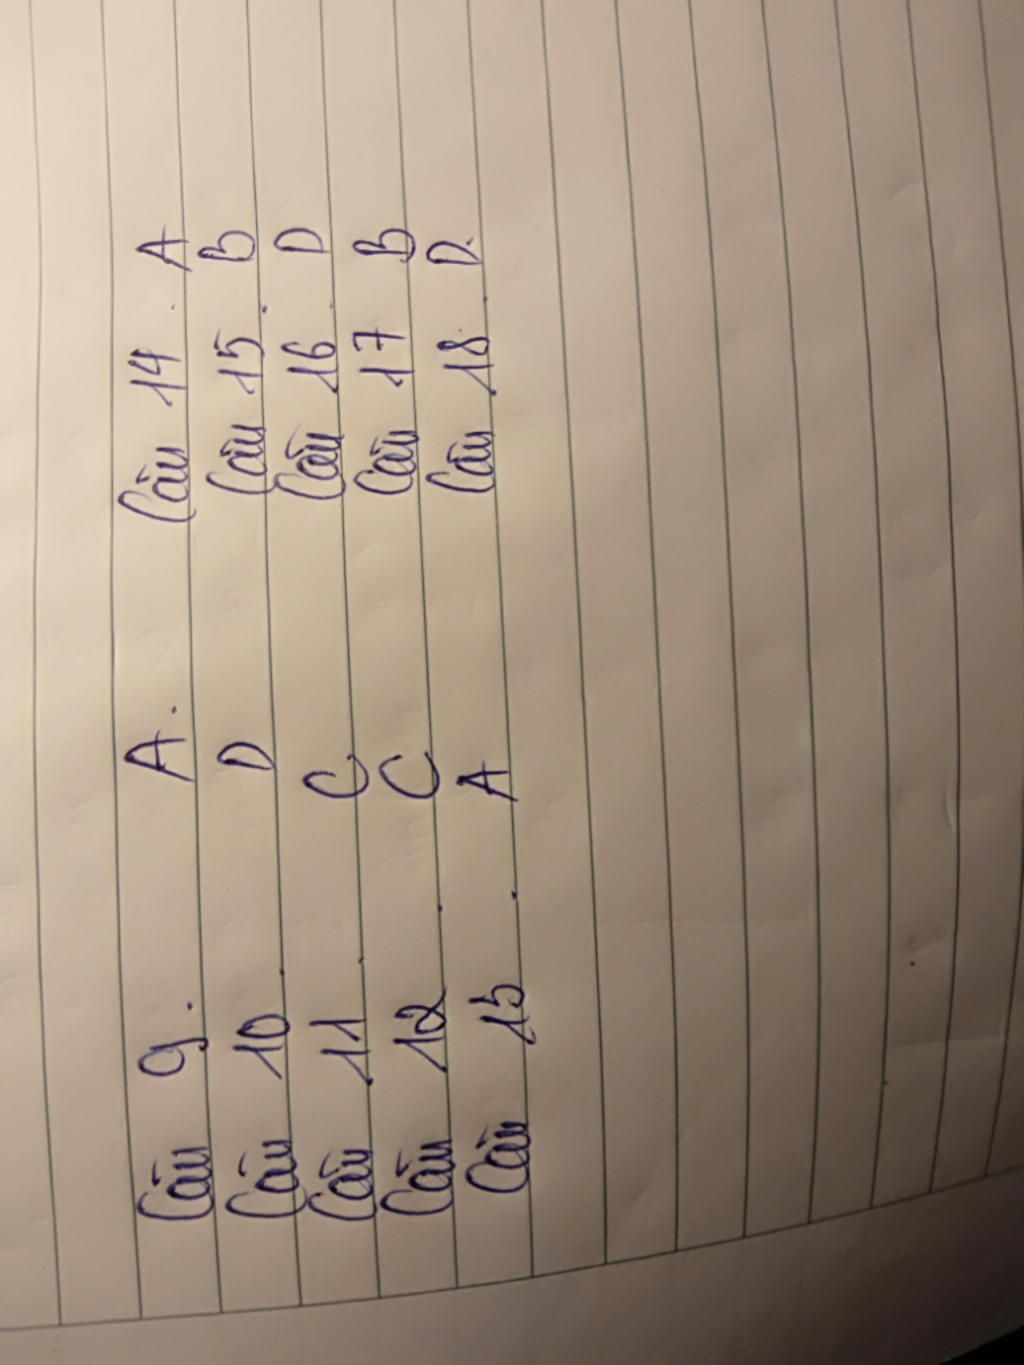 Câu 9. A.
Câu 10. D
Câu 11. C
Câu 12. C
Câu 13. A
Câu 14. A
Câu 15. B
Câu 16. D
Câu 17 B
Câu 18. D